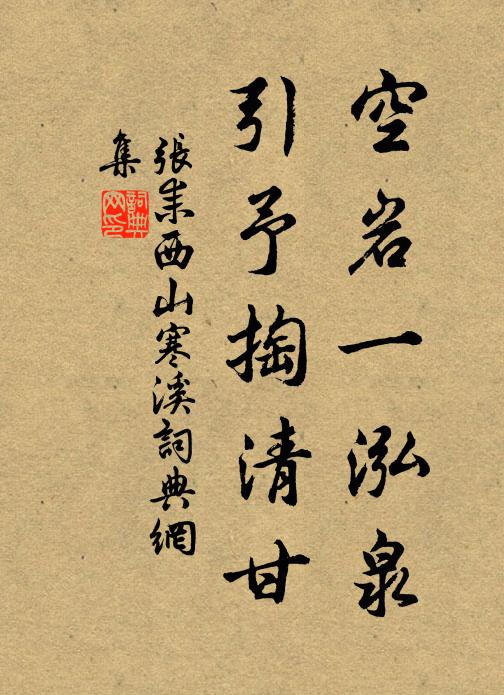 空岩一泓泉
引予掏清甘
張耒西山寒溪詞典網
集
詞典網印